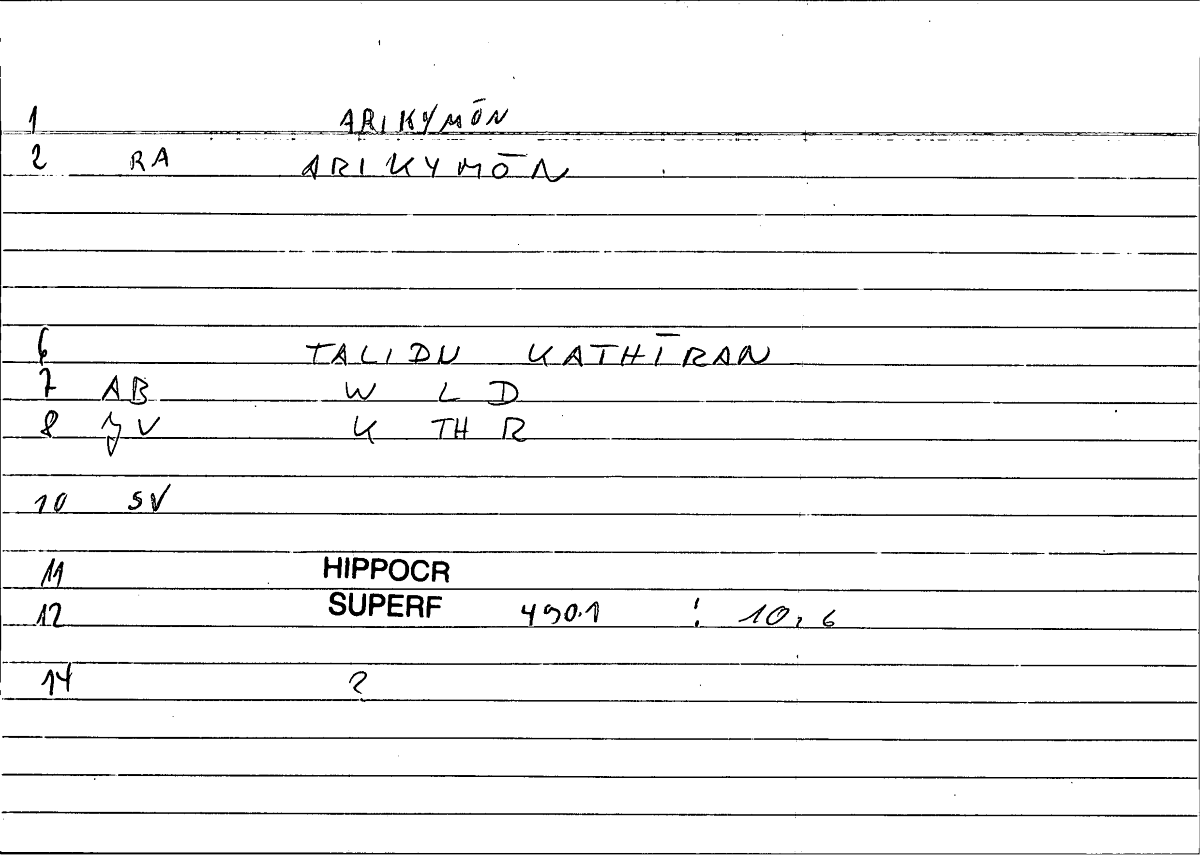 1 ARIKYMŌN
2 RA ARIKYMŌN
6 TALIDU KATHĪRAN
7 AB W L D
8 JV K TH R
10 SV
11 HIPPOCR
12 SUPERF 490.1 : 10,6
14 ?